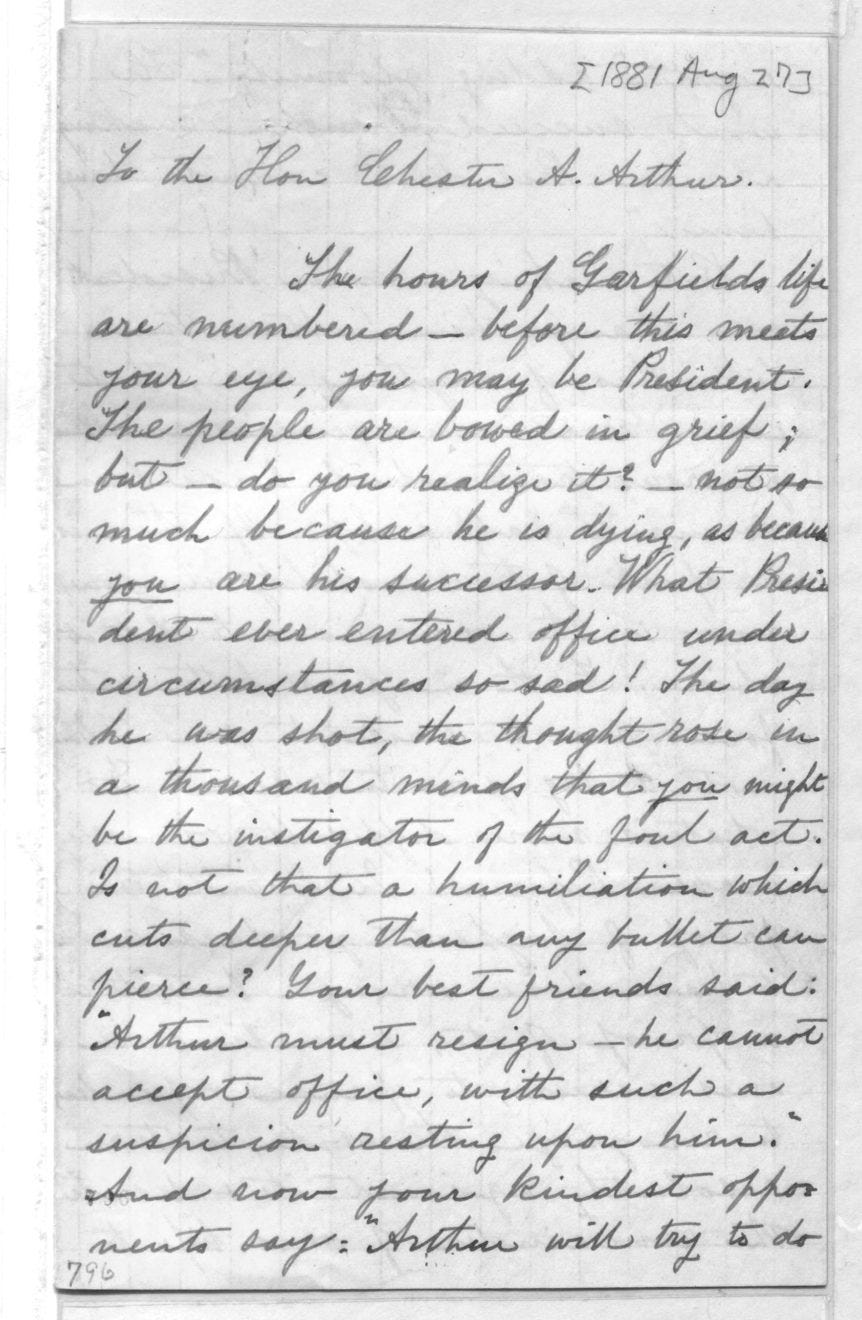 [1881 Aug 27]
To the Hon Chester A. Arthur.
The hours of Garfields life
are numbered — before this meets
your eye, you may be President.
The people are bowed in grief;
but — do you realize it? — not so
much because he is dying, as because
you are his successor. What Presi
dent ever entered office under
circumstances so sad! The day
he was shot, the thought rose in
a thousand minds that you might
be the instigator of the foul act.
Is not that a humiliation which
cuts deeper than any bullet can
pierce? Your best friends said:
"Arthur must resign — he cannot
accept office, with such a
suspicion resting upon him."
And now your kindest oppo=
nents say: "Arthur will try to do
796